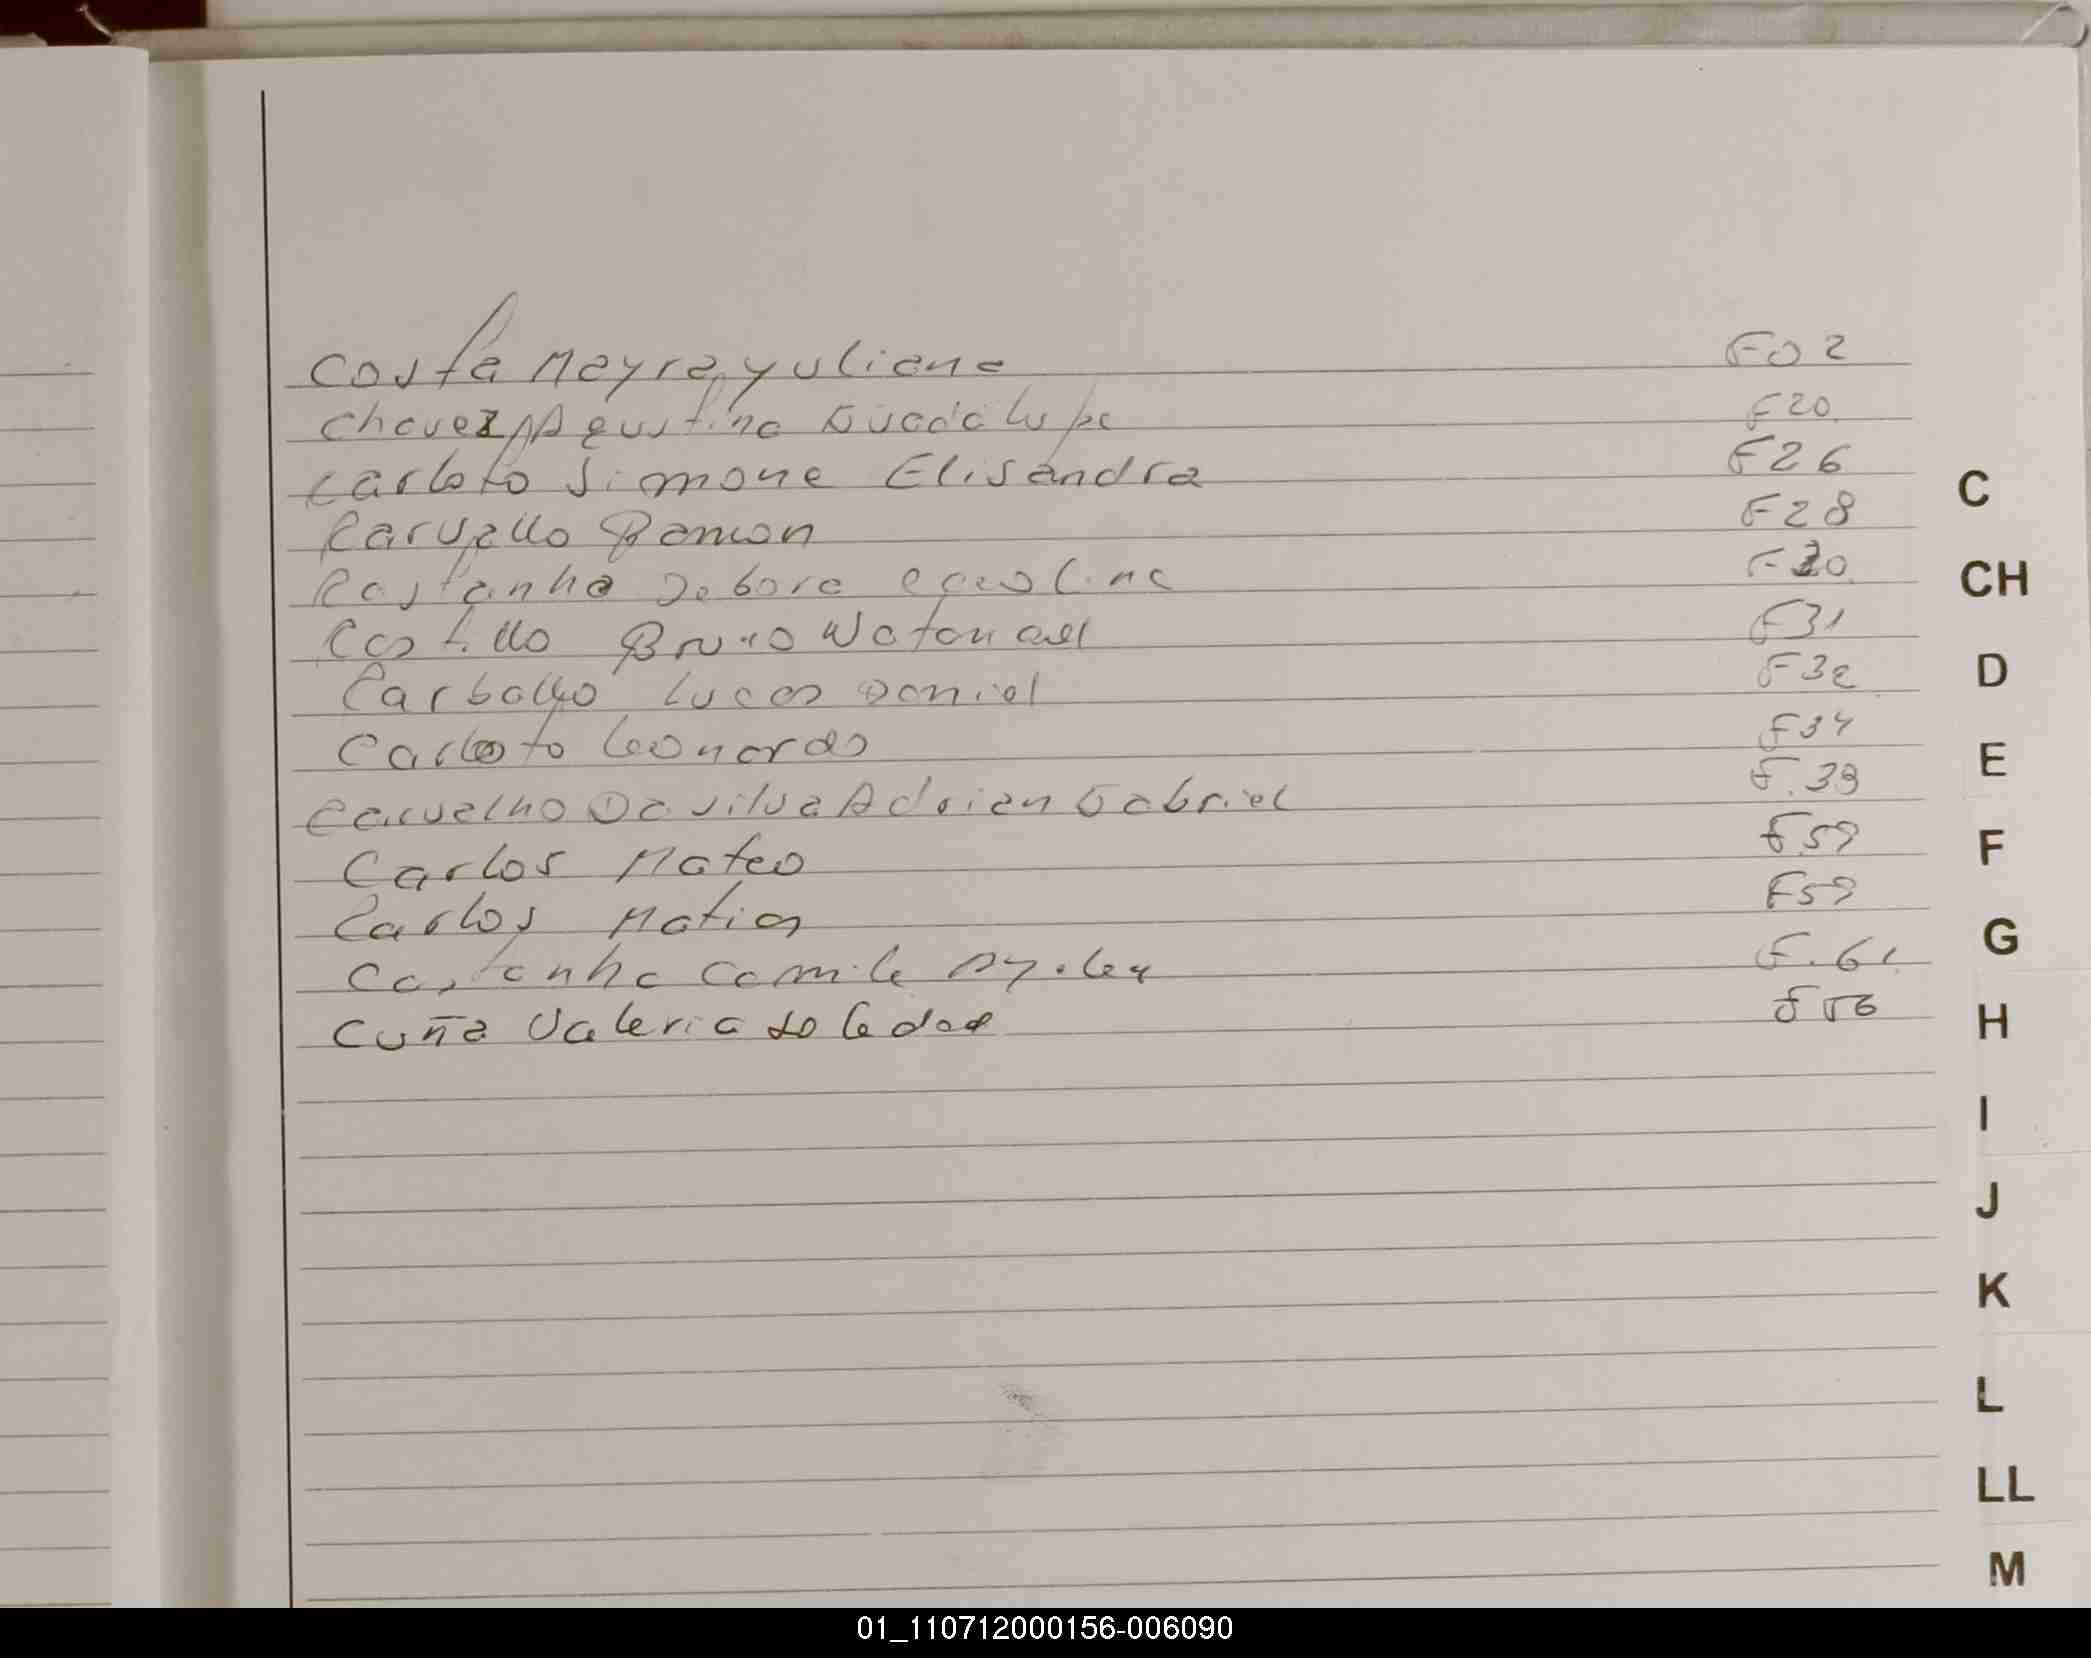 Costa Mayra yuliana F02
Chavez Agustina Guadalupe F20
Carloto Simone Elisandra F26
Carvallo Ramon F28
Castanha Debora Carolina F30
Castillo Bruno Natanael F31
Carballo Lucas Daniel F32
Carloto Leonardo F34
Carvalho Da silva Adrian Gabriel F.39
Carlos Mateo F59
Carlos Matias F59
Castanha Camila Aylen F.61
Cuña Valeria Soledad F56
C
CH
D
E
F
G
H
I
J
K
L
LL
M
01_110712000156-006090